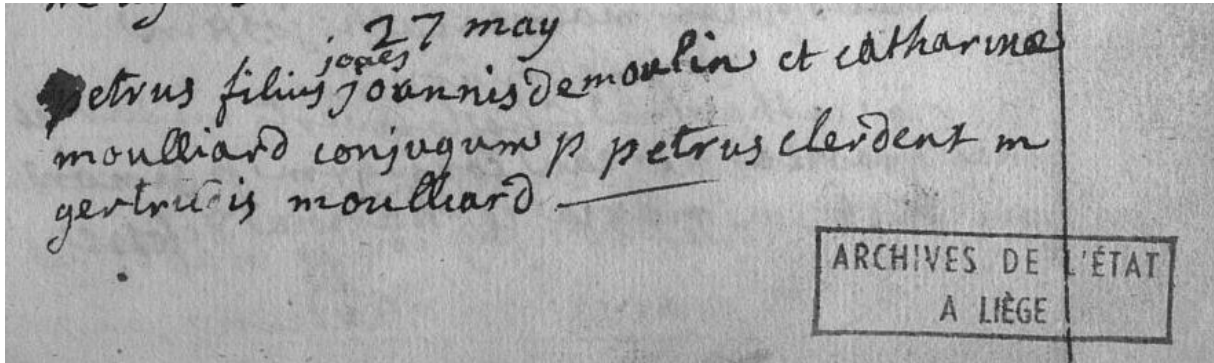 27 may
joäes
petrus filius joannis demoulin et catharinæ
moulliard conjugum p petrus clerdent m
gertrudis moulliard
ARCHIVES DE L'ÉTAT
A LIÈGE